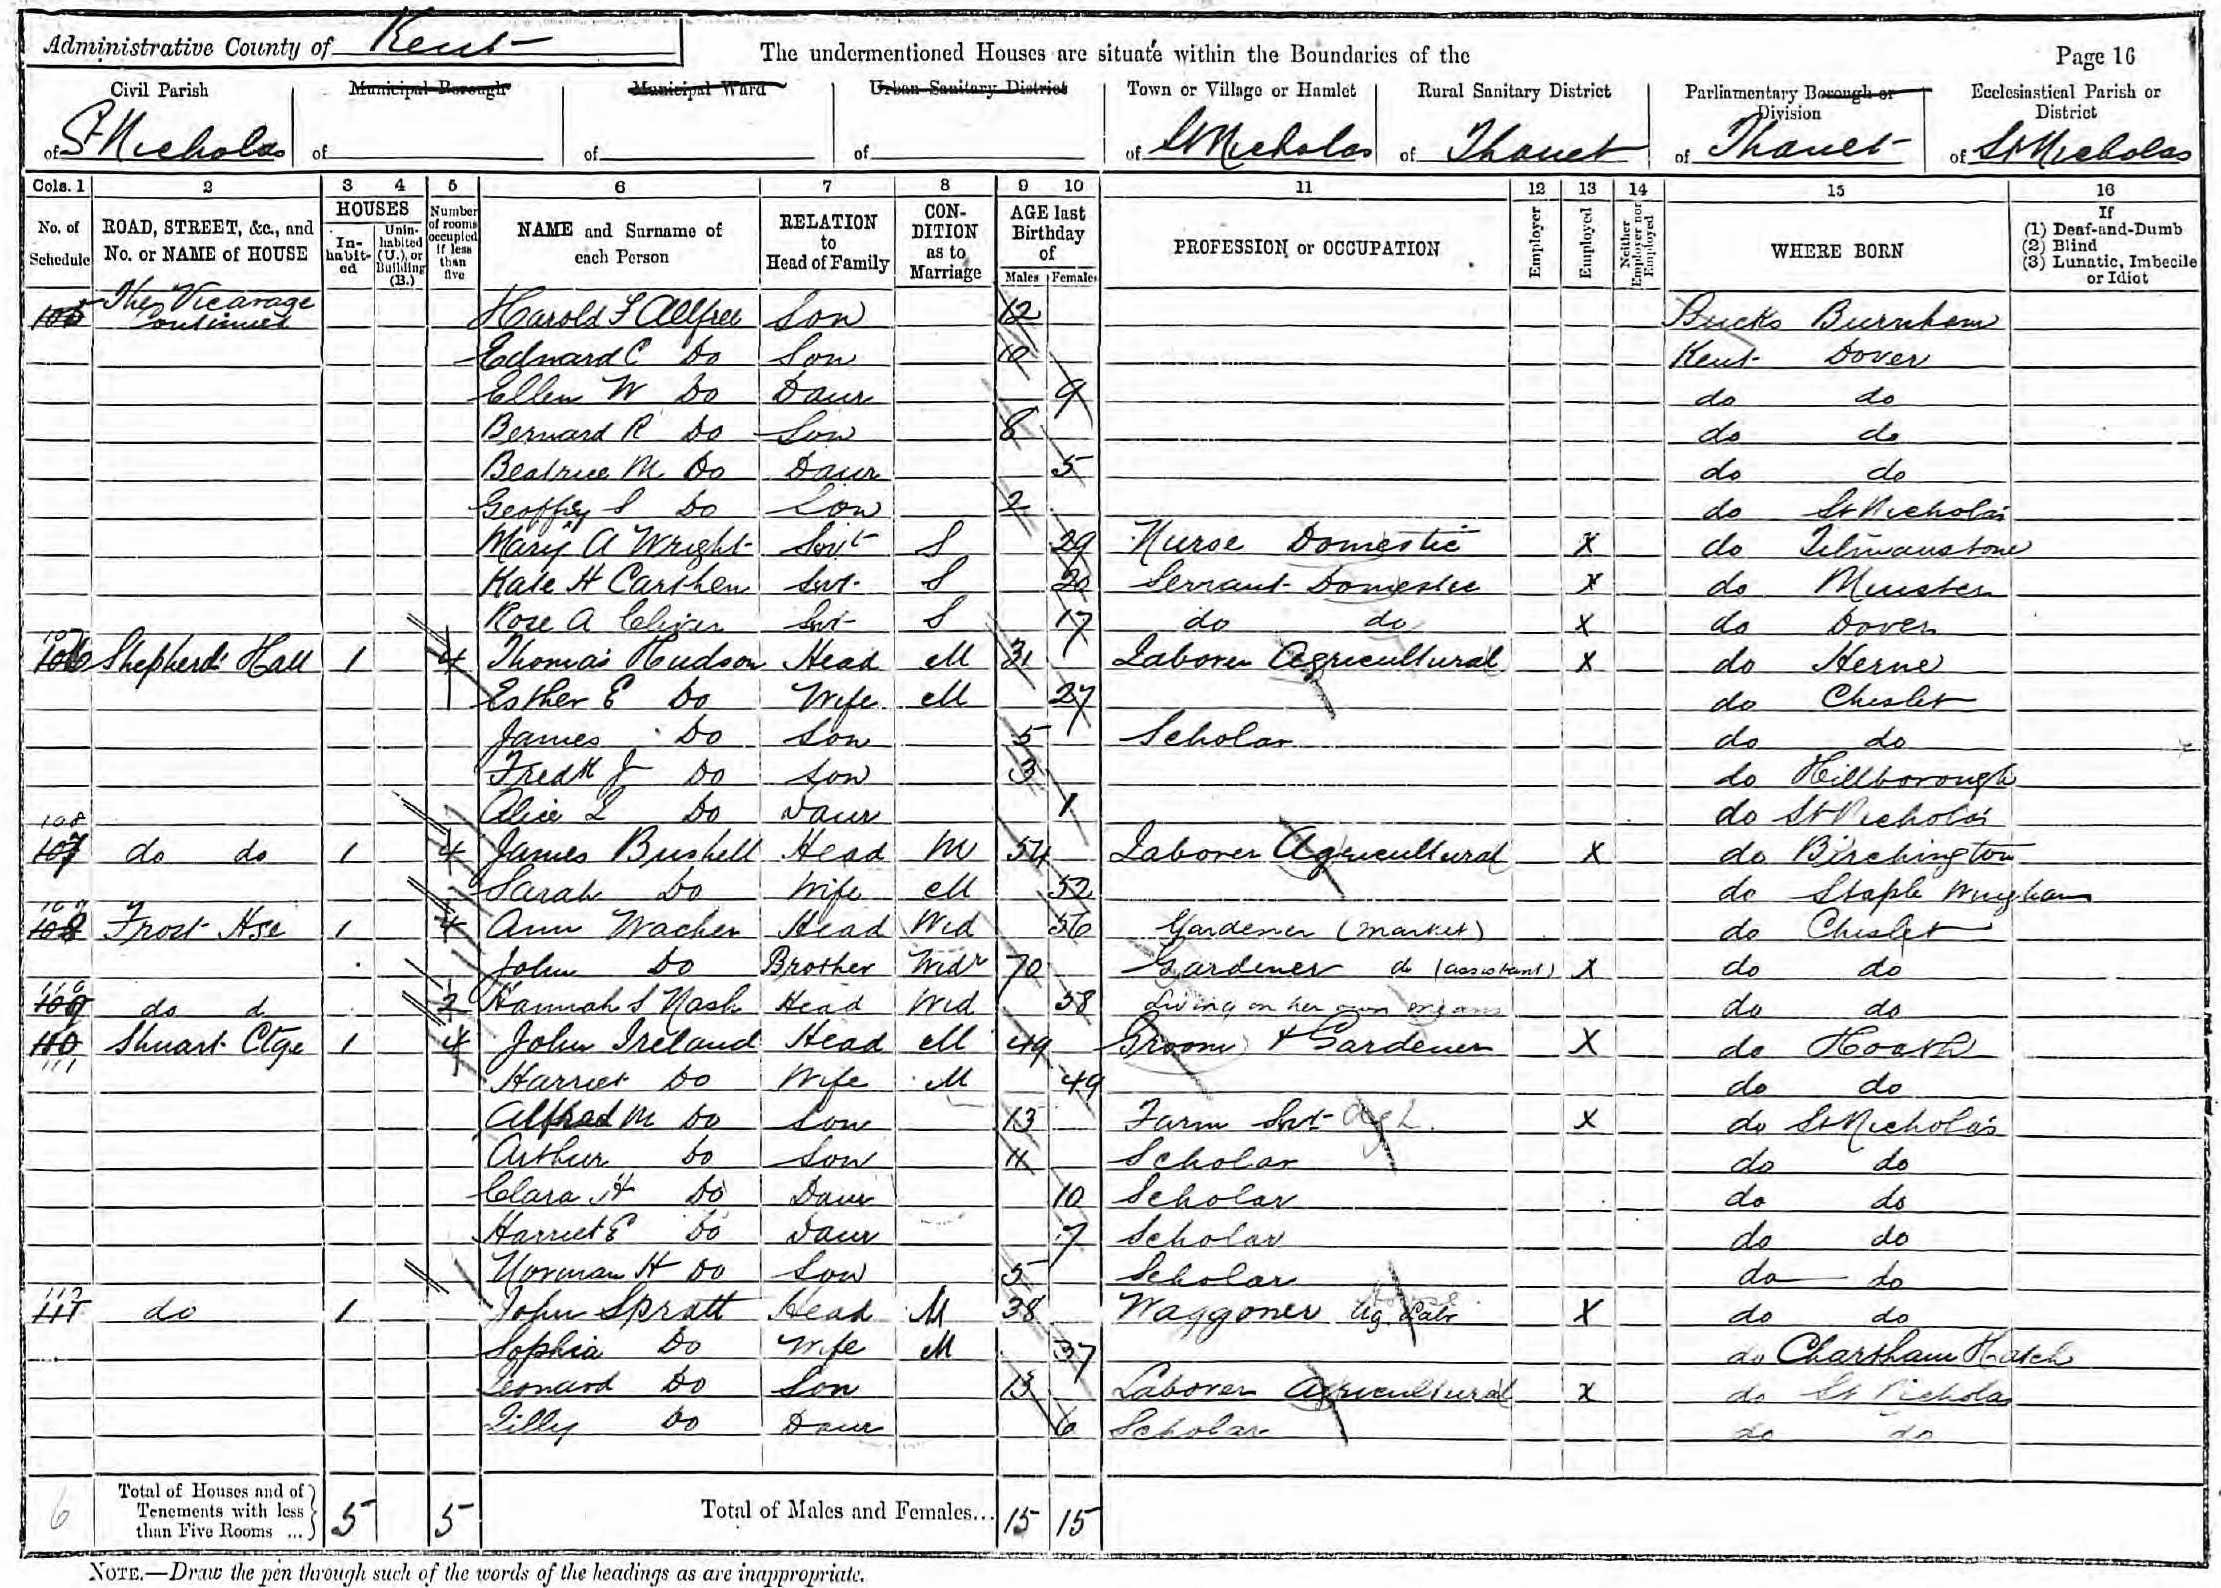 Administrative County of Kent
The undermentioned Houses are situate within the Boundaries of the
Page 16
Civil Parish
Municipal Borough
Municipal Ward
Urban Sanitary District
Town or Village or Hamlet
Rural Sanitary District
Parliamentary Borough or Division
Ecclesiastical Parish or District
of St Nicholas
of
of
of
of St Nicholas
of Thanet
of Thanet
of St Nicholas
Cols. 1 2 3 4 5 6 7 8 9 10 11 12 13 14 15 16
No. of Schedule
ROAD, STREET, &c., and No. or NAME of HOUSE
HOUSES
In-habit-ed
Unin-habited (U.), or Building (B.)
Number of rooms occupied if less than five
NAME and Surname of each Person
RELATION to Head of Family
CON-DITION as to Marriage
AGE last Birthday of
Males Females
PROFESSION or OCCUPATION
Employer
Employed
Neither Employer nor Employed
WHERE BORN
If
(1) Deaf-and-Dumb
(2) Blind
(3) Lunatic, Imbecile or Idiot
105 The Vicarage Continued Harold F Allfree Son 12 Bucks Burnham
Edward C Do Son 10 Kent Dover
Ellen W Do Daur 9 do do
Bernard R Do Son 8 do do
Beatrice M Do Daur 5 do do
Geoffrey S Do Son 2 do St Nicholas
Mary A Wright Srvt S 29 Nurse Domestic X do Tilmanstone
Kate H Servt S 20 Servant Domestic X do Minster
Rose A Srvt S 17 do do X do Dover
107
106 Shepherds Hall 1 4 Thomas Hudson Head M 31 Laborer Agricultural X do Herne
Esther E Do Wife M 27 do Chislet
James Do Son 5 Scholar do do
Fredk J Do Son 3 do Hillborough
Alice L Do Daur 1 do St Nicholas
108
107 do do 1 4 James Bushell Head M 54 Laborer Agricultural X do Birchington
Sarah Do Wife M 52 do Staple Wingham
109
108 Frost Hse 1 4 Ann Wacher Head Wid 56 Gardener (Market) do Chislet
John Do Brother Widr 70 Gardener do (assistant) X do do
110
109 do d 2 Hannah S Nash Head Wid 58 Living on her own means do do
110 Stuart Ctge 1 4 John Ireland Head M 49 Groom & Gardener X do Hoath
111 Harriet Do Wife M 49 do do
Alfred M Do Son 13 Farm Svt Ag L. X do St Nicholas
Arthur Do Son 11 Scholar do do
Clara H Do Daur 10 Scholar do do
Harriet E Do Daur 7 Scholar do do
Norman H Do Son 5 Scholar do do
112
111 do 1 John Spratt Head M 38 Waggoner Ag Labr Horse X do do
Sophia Do Wife M 37 do Chartham Hatch
Leonard Do Son 13 Laborer Agricultural X do St Nicholas
Lilly Do Daur 6 Scholar do do
6 Total of Houses and of Tenements with less than Five Rooms ... 5 5 Total of Males and Females... 15 15
NOTE.—Draw the pen through such of the words of the headings as are inappropriate.